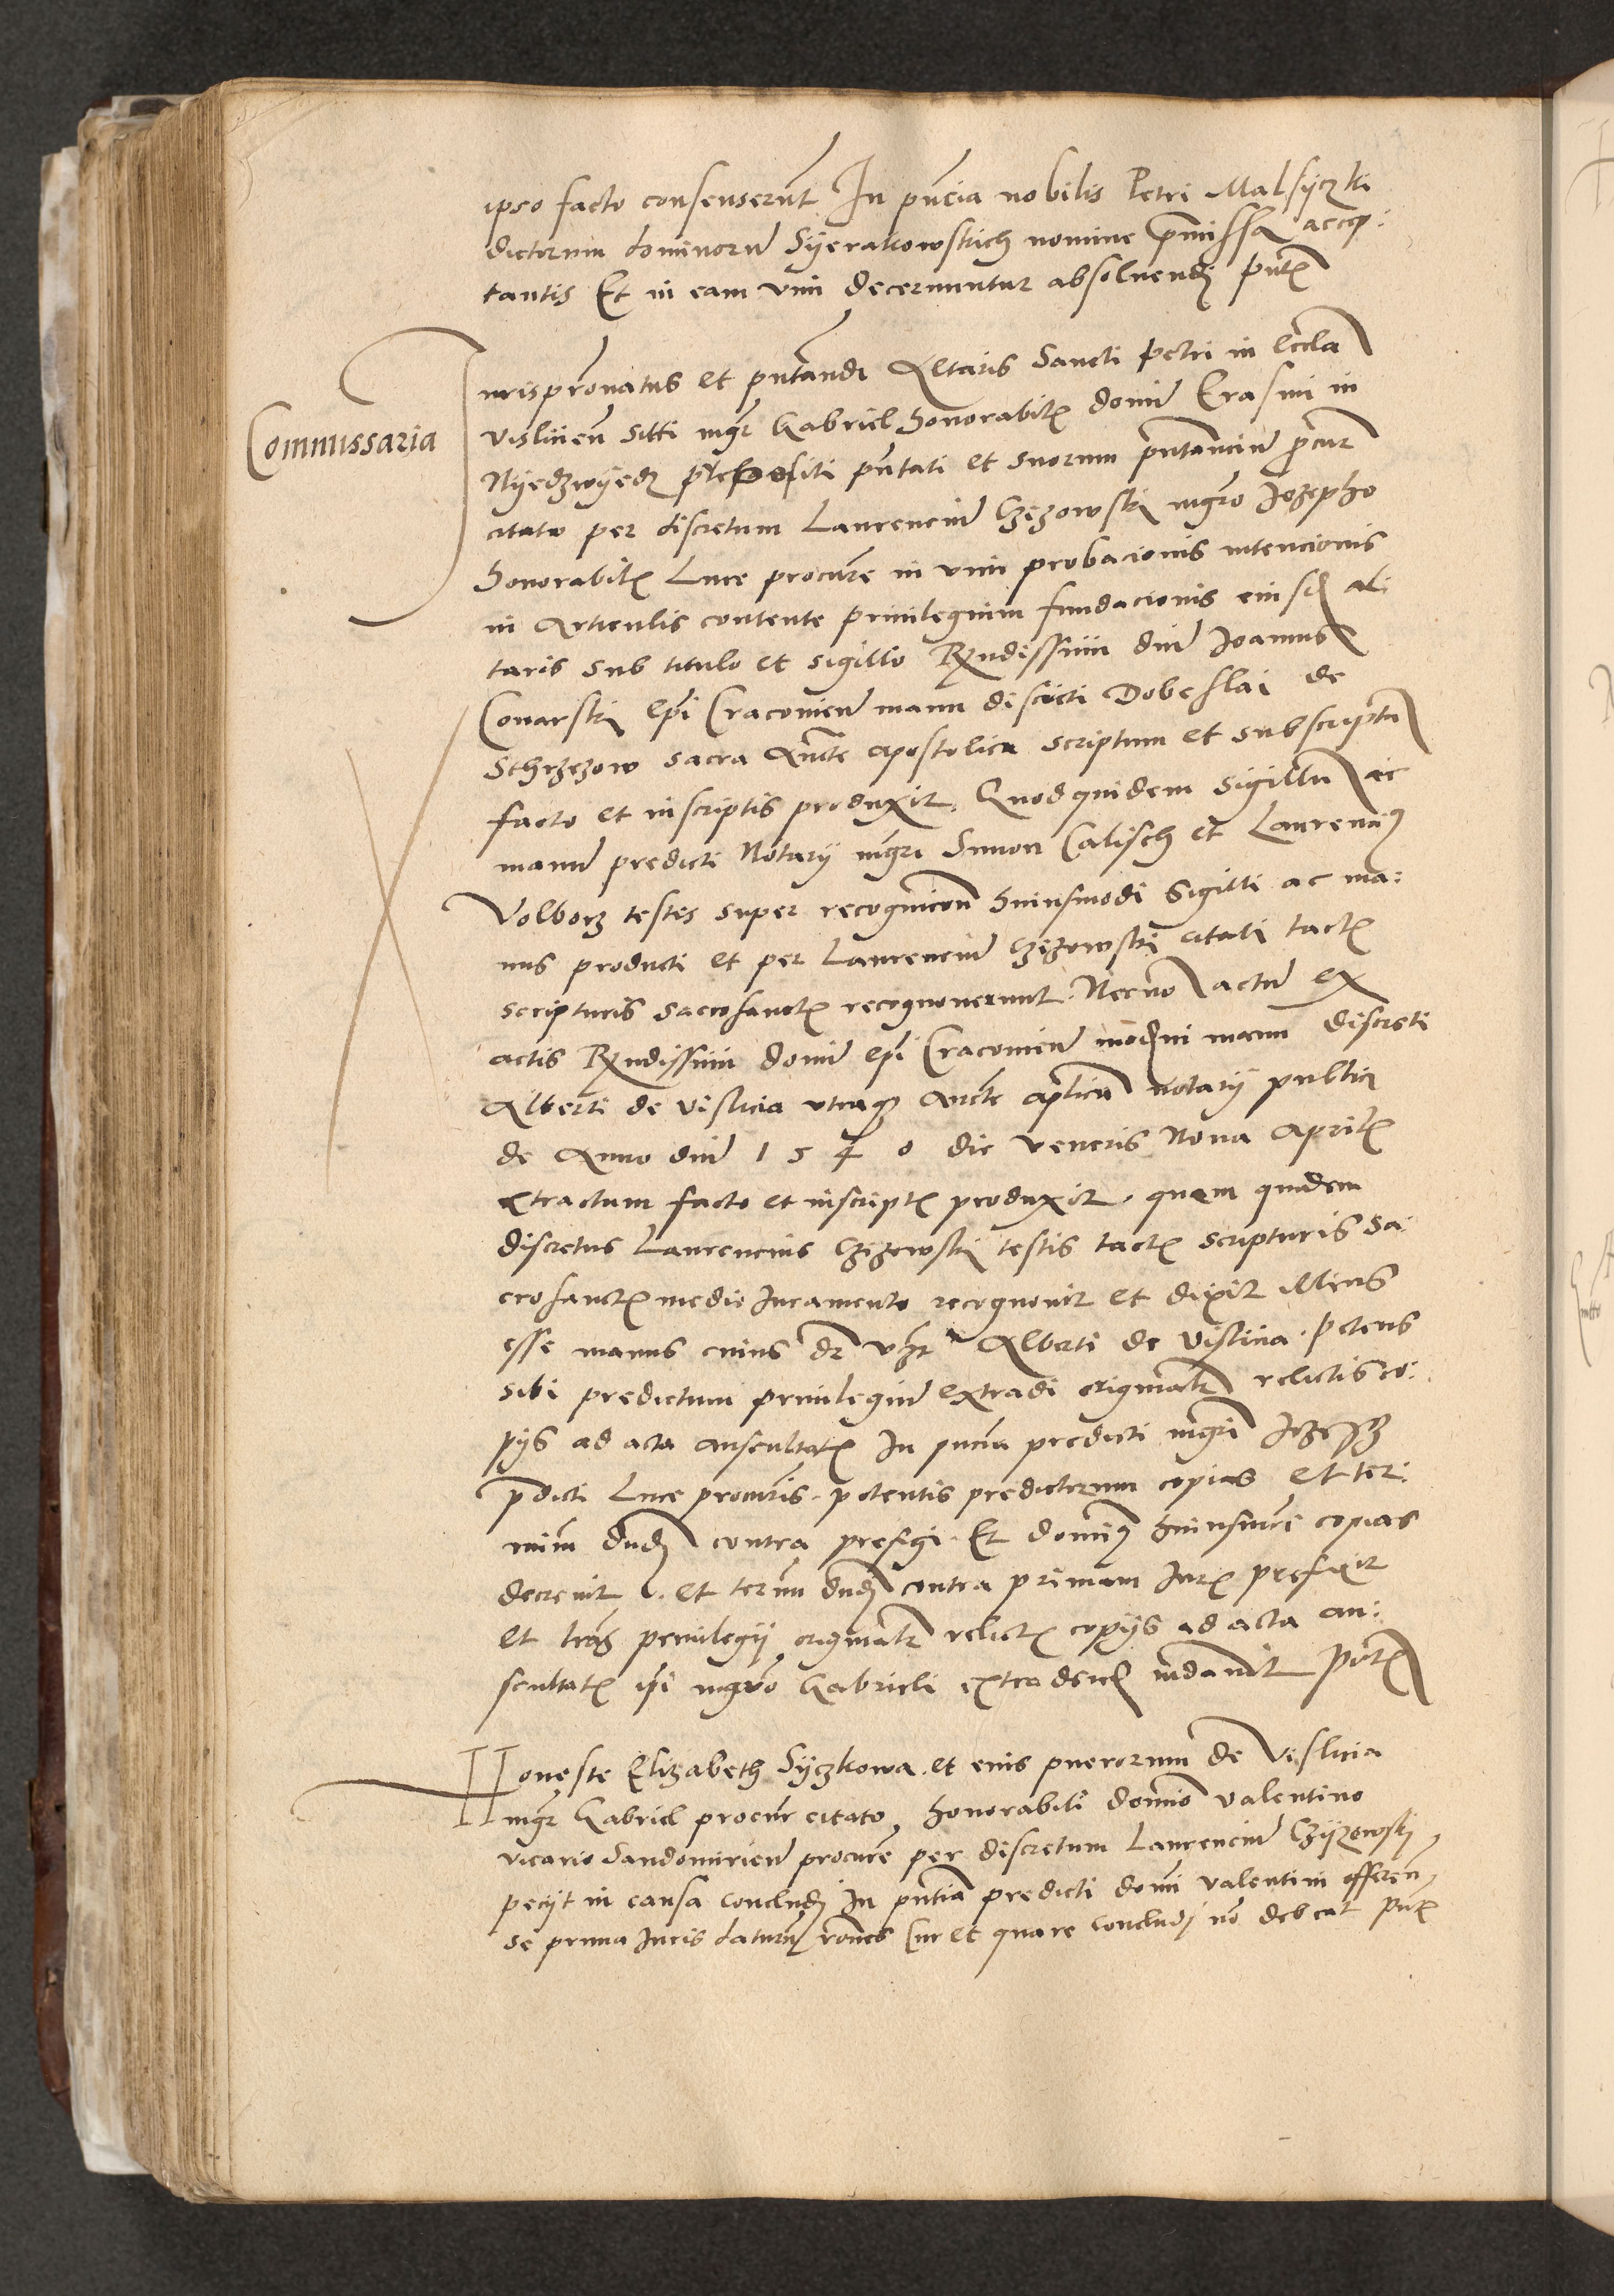 ipso facto consenserunt In pncia nobilis Petri Malsyczki
dictorum dominorum Syerakowskich nomine pmissa accep:
tantis Et in eam vim decernuntur absoluendi pntz
Commissaria
Jurispronatus et pntandi Altaris Sancti Petri in Eccla
Vislicien siti mgr Gabriel honorabilis domi Erasmi in
Nyedzwyedz pntati et suorum pntancium procur
citato per discretum Laurencium Czyzowski mgro Jozepho
honorabilis Luce procure in vim probacionis intencionis
in Articulis contente priuilegium fundacionis eiusdem al:
taris sub titulo et sigillo Rndissimi dni Joannis
Conarski Epi Cracouien manu discreti Dobeslai de
Sthrzezow sacra aucte apostolica scriptum et subscriptu
facto et inscriptis produxit, Quod quidem Sigillu ac
manu predicti Notarij mgri Simon Calisch et Laurencius
Volborz testes super recognicion huiusmodi Sigilli ac ma:
nus producti et per Laurencium Czyzowski citati tactis
scripturis sacrosanctis recognouerunt. Necno actum ex
actis Rndissimi domi epi Cracouien moderni manu discreti
Alberti de Vislicia vtraq aucte aplica notarij publici
de Anno dni 1540 die veneris Nona Aprilis
extractum facto et inscriptis produxit. quam quidem
discretus Laurencius Czyzowski testis tactis scripturis sa:
crosanctis medio Juramento recognouit et dixit illius
esse manus cuius Alberti de Vislicia. petens
sibi predictum priuilegium extradi originale relictis co:
pijs ad acta auscultatis In pncia predicti mgri Jozeph
pdicti Luce procuris. petentis predictorum copias et ter:
minum contra prefigi. Et dominus huiusmodi copias
decreuit. et termin contra primam Juris prefixit
et lras priuilegij originale relictis copijs ad acta au:
scultatis ipi mgro Gabrieli extradendi mdauit pntz
Honeste Elizabeth Syczkowa et eius puerorum de Vislicia
mgr Gabriel procur citato, honorabili domino Valentino
vicario Sandomirien procure per discretum Laurencium Czyzowski,
pecijt in causa concludi In pntia predicti domi Valentini offeren,
se prima Juris daturum rones Cur et quare concludi no debeat pntz